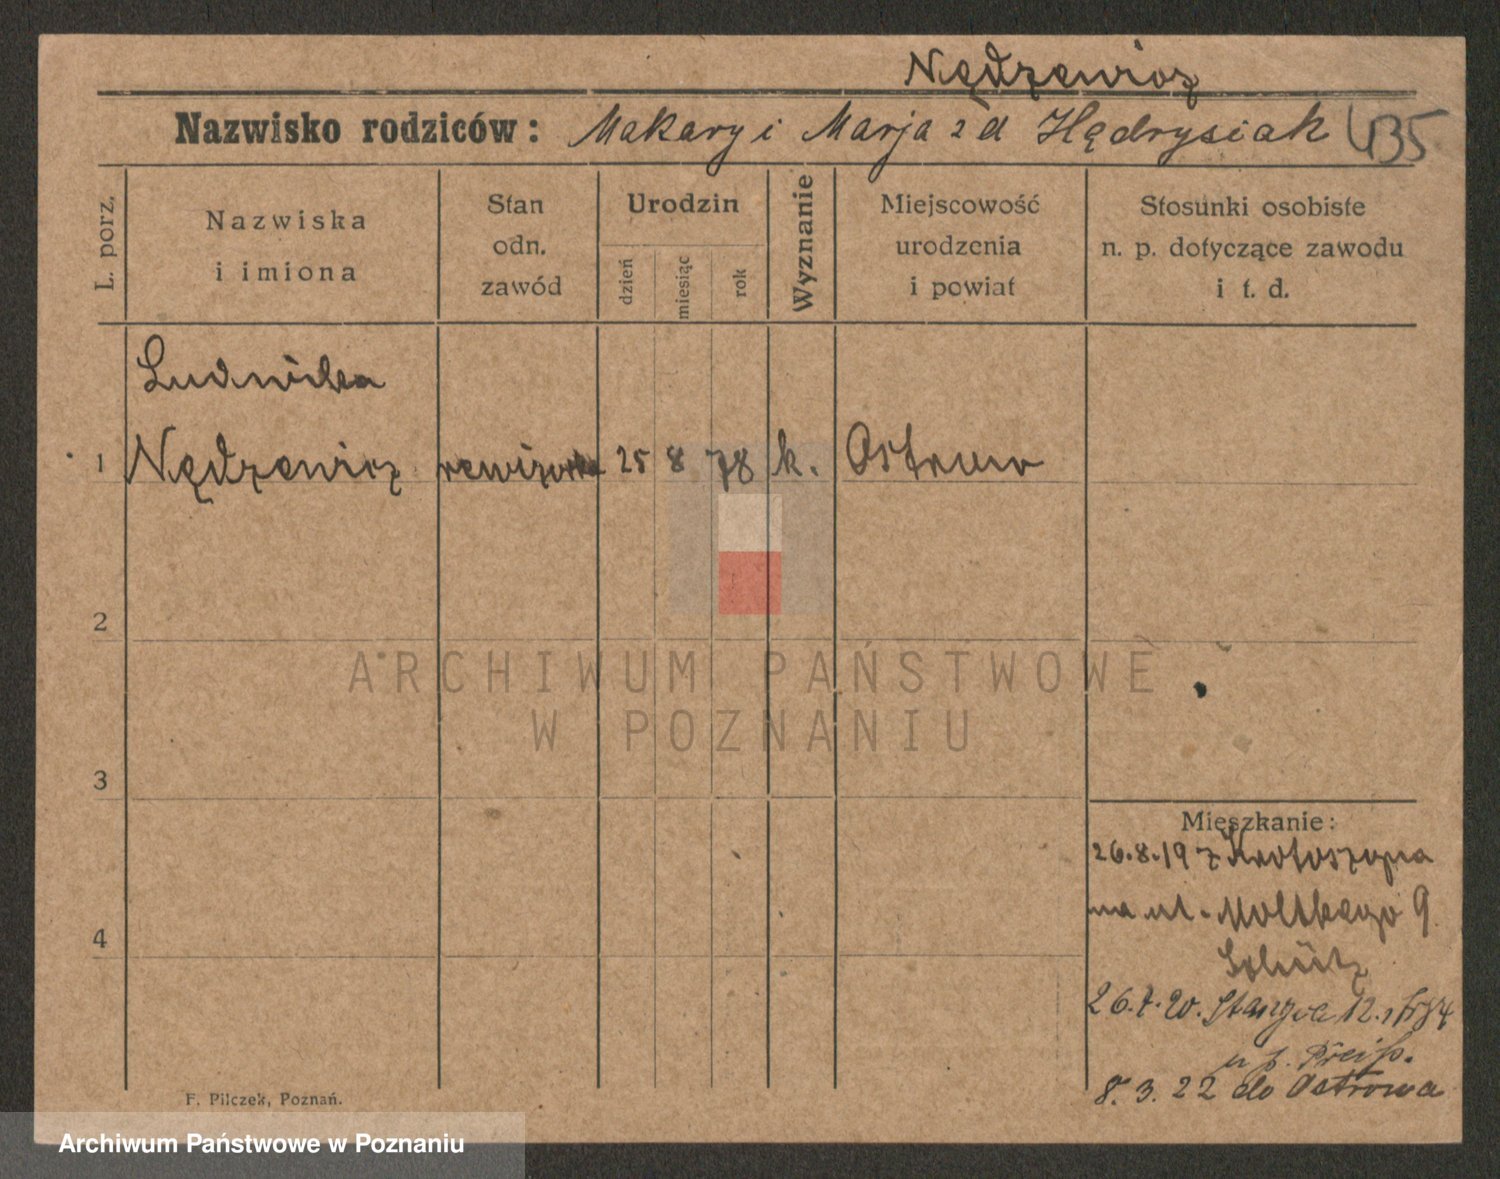 Nędzewicz
Nazwisko rodziców: Makary i Marja z d Hędrysiak 435
L. porz.
Nazwiska
i imiona
Stan
odn.
zawód
Urodzin
dzień
miesiąc
rok
Wyznanie
Miejscowość
urodzenia
i powiat
Stosunki osobiste
n. p. dotyczące zawodu
i t. d.
Ludwika
1 Nędzewicz rewizorka 25 8 78 k. Ostrowo
2
ARCHIWUM PAŃSTWOWE
W POZNANIU
3
4
Mieszkanie:
26.8.19 z Krotoszyna
na ul. Moltkego 9
26.7.20. 12.
u p. Preiß.
8. 3. 22 do Ostrowa
F. Pilczek, Poznań.
Archiwum Państwowe w Poznaniu